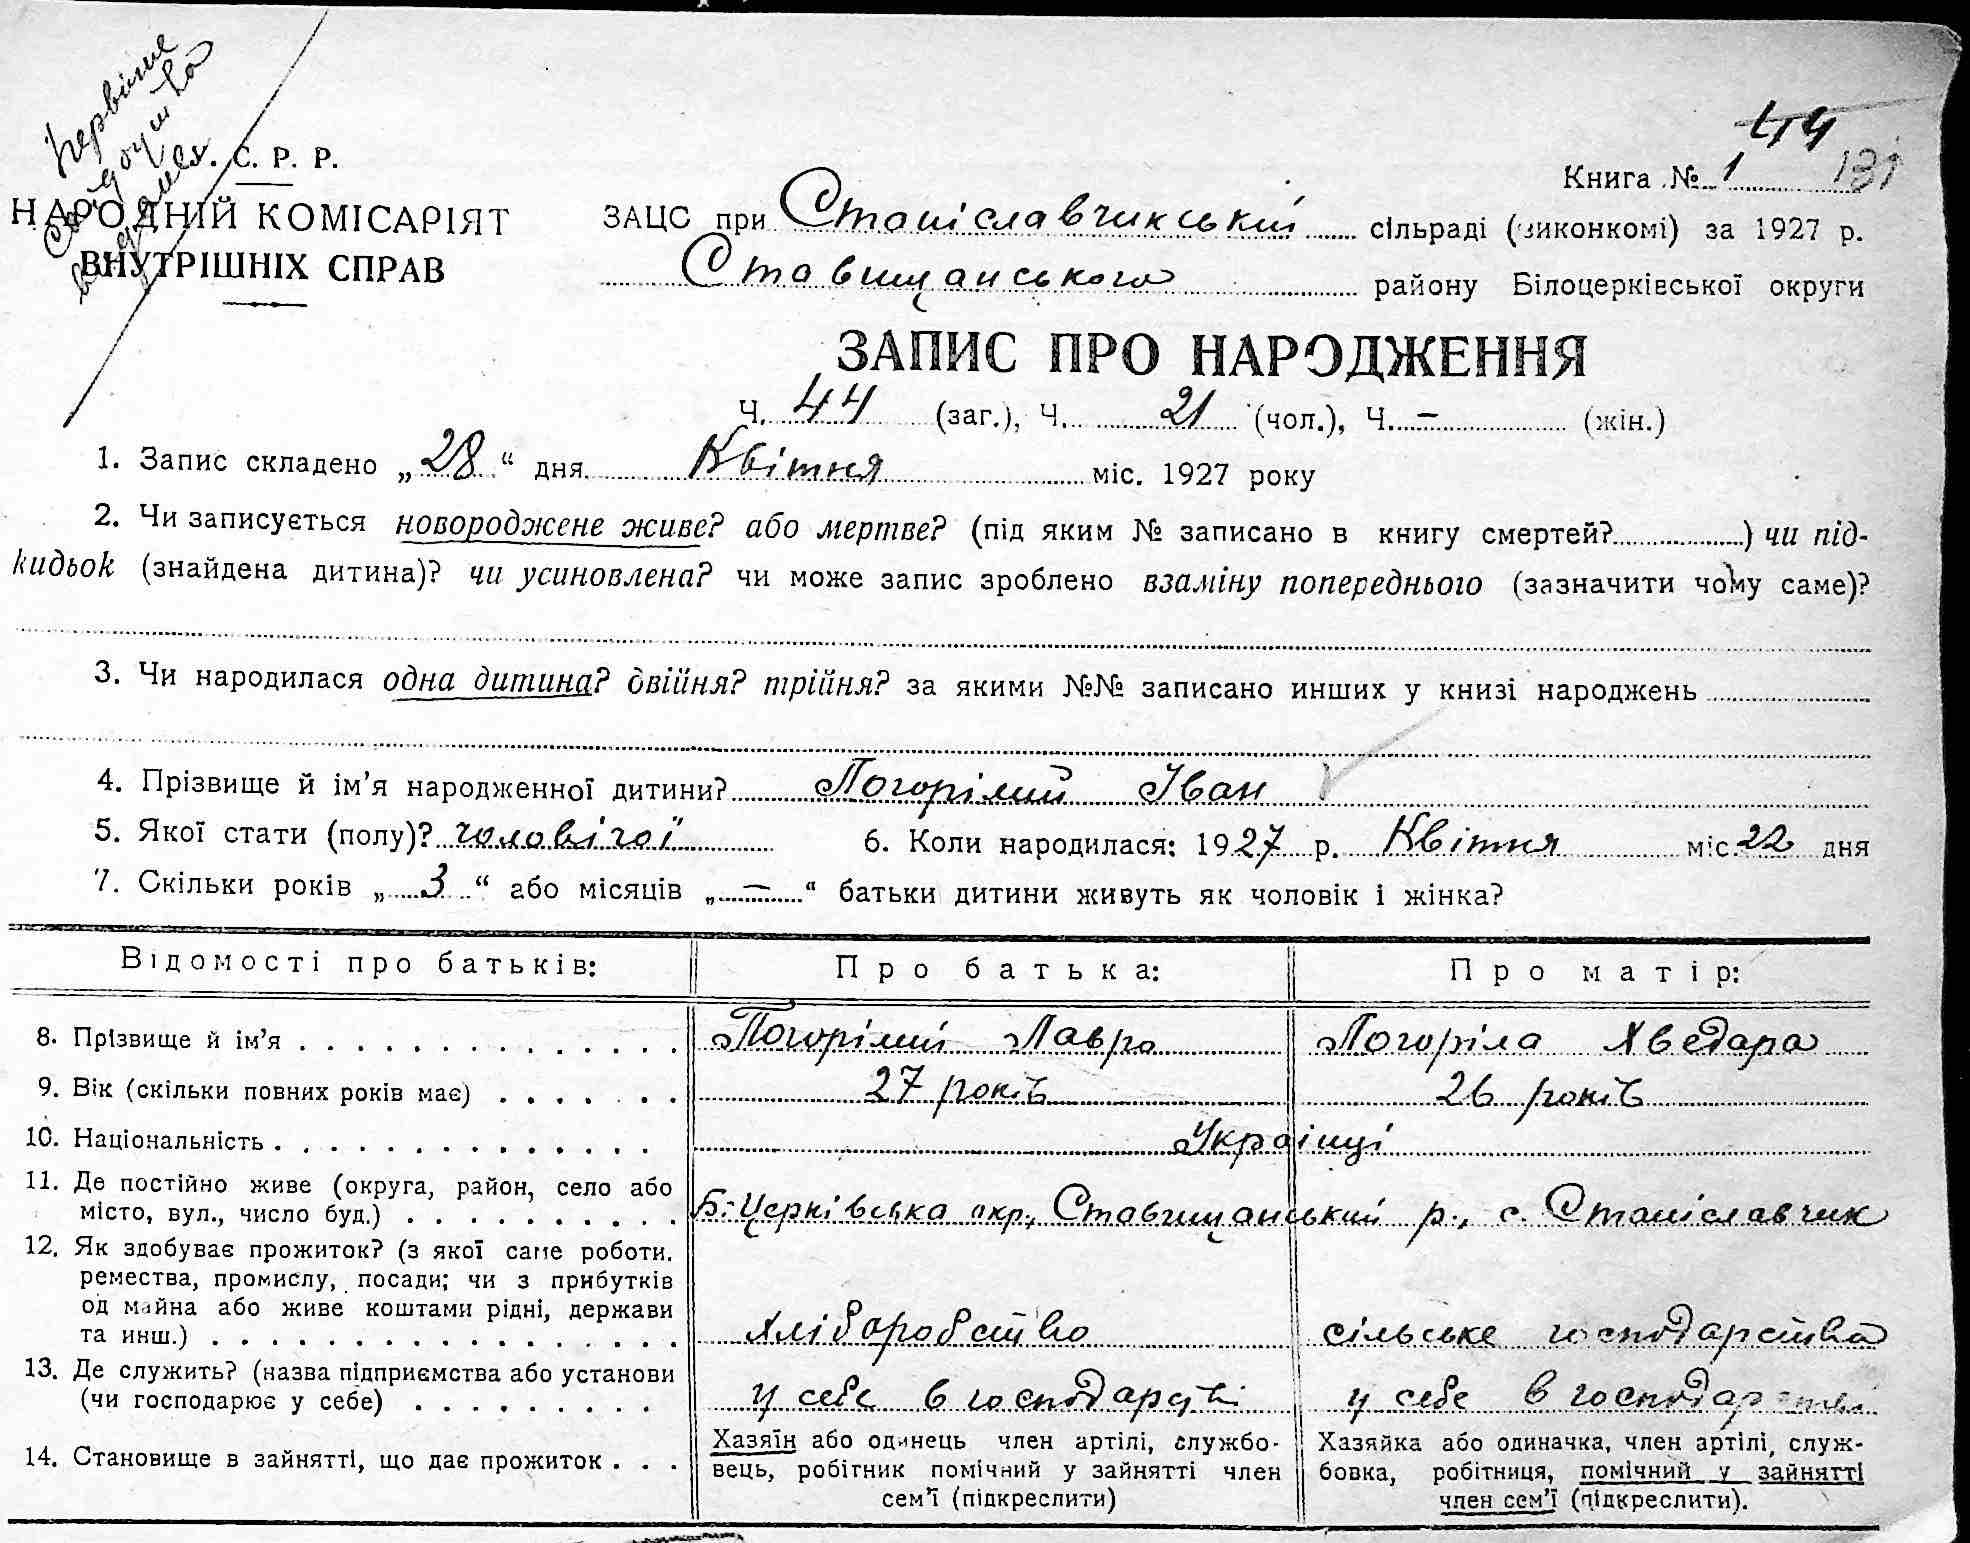 Первісне
свідоцтво
видалися.
С. Р. Р.
НАРОДНІЙ КОМІСАРІЯТ
ВНУТРІШНІХ СПРАВ
44
Книга № 1 131
ЗАЦС при Станіславчикській сільраді (виконкомі) за 1927 р.
Ставищанського району Білоцерківської округи
ЗАПИС ПРО НАРОДЖЕННЯ
Ч. 44 (заг.), Ч. 21 (чол.), Ч. – (жін.)
1. Запис складено „28“ дня Квітня міс. 1927 року
2. Чи записується новороджене живе? або мертве? (під яким № записано в книгу смертей? ) чи під-
кидьок (знайдена дитина)? чи усиновлена? чи може запис зроблено взаміну попереднього (зазначити чому саме)?
3. Чи народилася одна дитина? двійня? трійня? за якими №№ записано инших у книзі народжень
4. Прізвище й ім’я народженної дитини? Погорілий Іван
5. Якої стати (полу)? чоловічої 6. Коли народилася: 1927 р. Квітня міс. 22 дня
7. Скільки років „3“ або місяців „–“ батьки дитини живуть як чоловік і жінка?
Відомості про батьків: Про батька: Про матір:
8. Прізвище й ім’я Погорілий Лавро Погоріла Хведара
9. Вік (скільки повних років має) 27 років 26 років
10. Національність Українці
11. Де постійно живе (округа, район, село або
місто, вул., число буд.) Б-Церківська окр., Ставищанський р., с. Станіславчик
12. Як здобуває прожиток? (з якої саме роботи.
ремества, промислу, посади; чи з прибутків
од майна або живе коштами рідні, держави
та инш.) Хліборобство сільське господарство
13. Де служить? (назва підприємства або установи
(чи господарює у себе) у себе в господарстві у себе в господарстві
14. Становище в зайнятті, що дає прожиток
Хазяїн або одинець член артілі, службо-
вець, робітник помічний у зайнятті член
сем’ї (підкреслити)
Хазяйка або одиначка, член артілі, служ-
бовка, робітниця, помічний у зайнятті
член сем’ї (підкреслити).